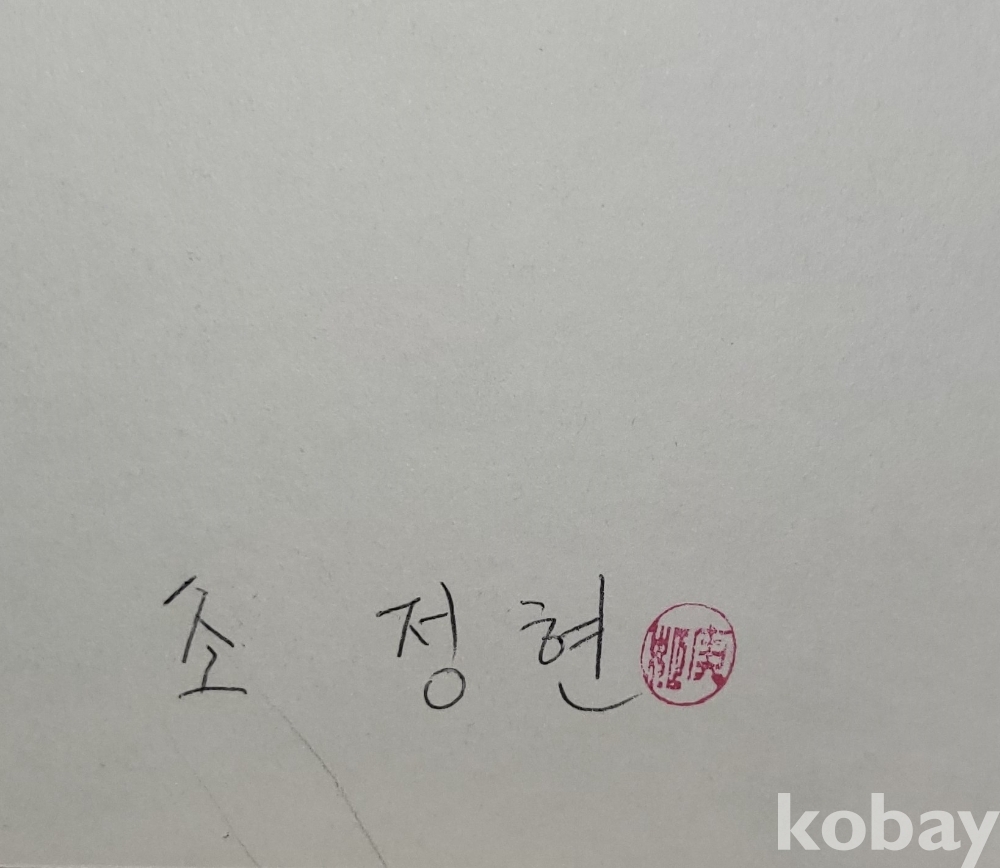 소 정 현
kobay